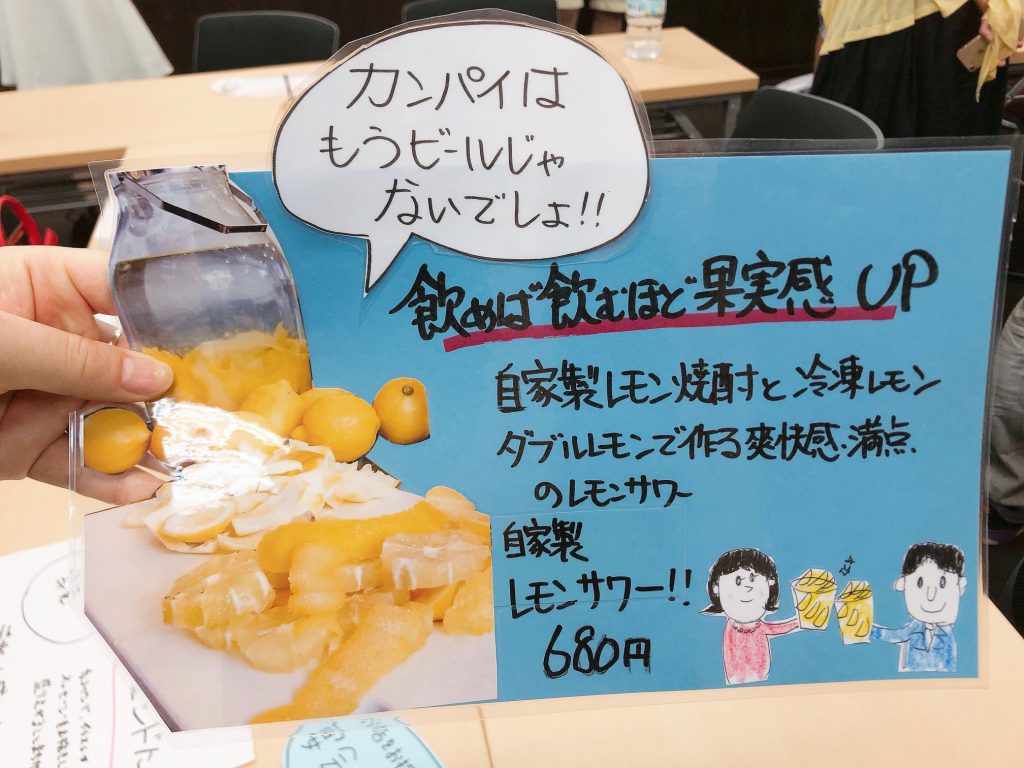 カンパイは
もうビールじゃ
ないでしょ!!
飲めば飲むほど果実感UP
自家製レモン焼酎と冷凍レモン
ダブルレモンで作る爽快感満点
のレモンサワー
自家製
レモンサワー!!
680円